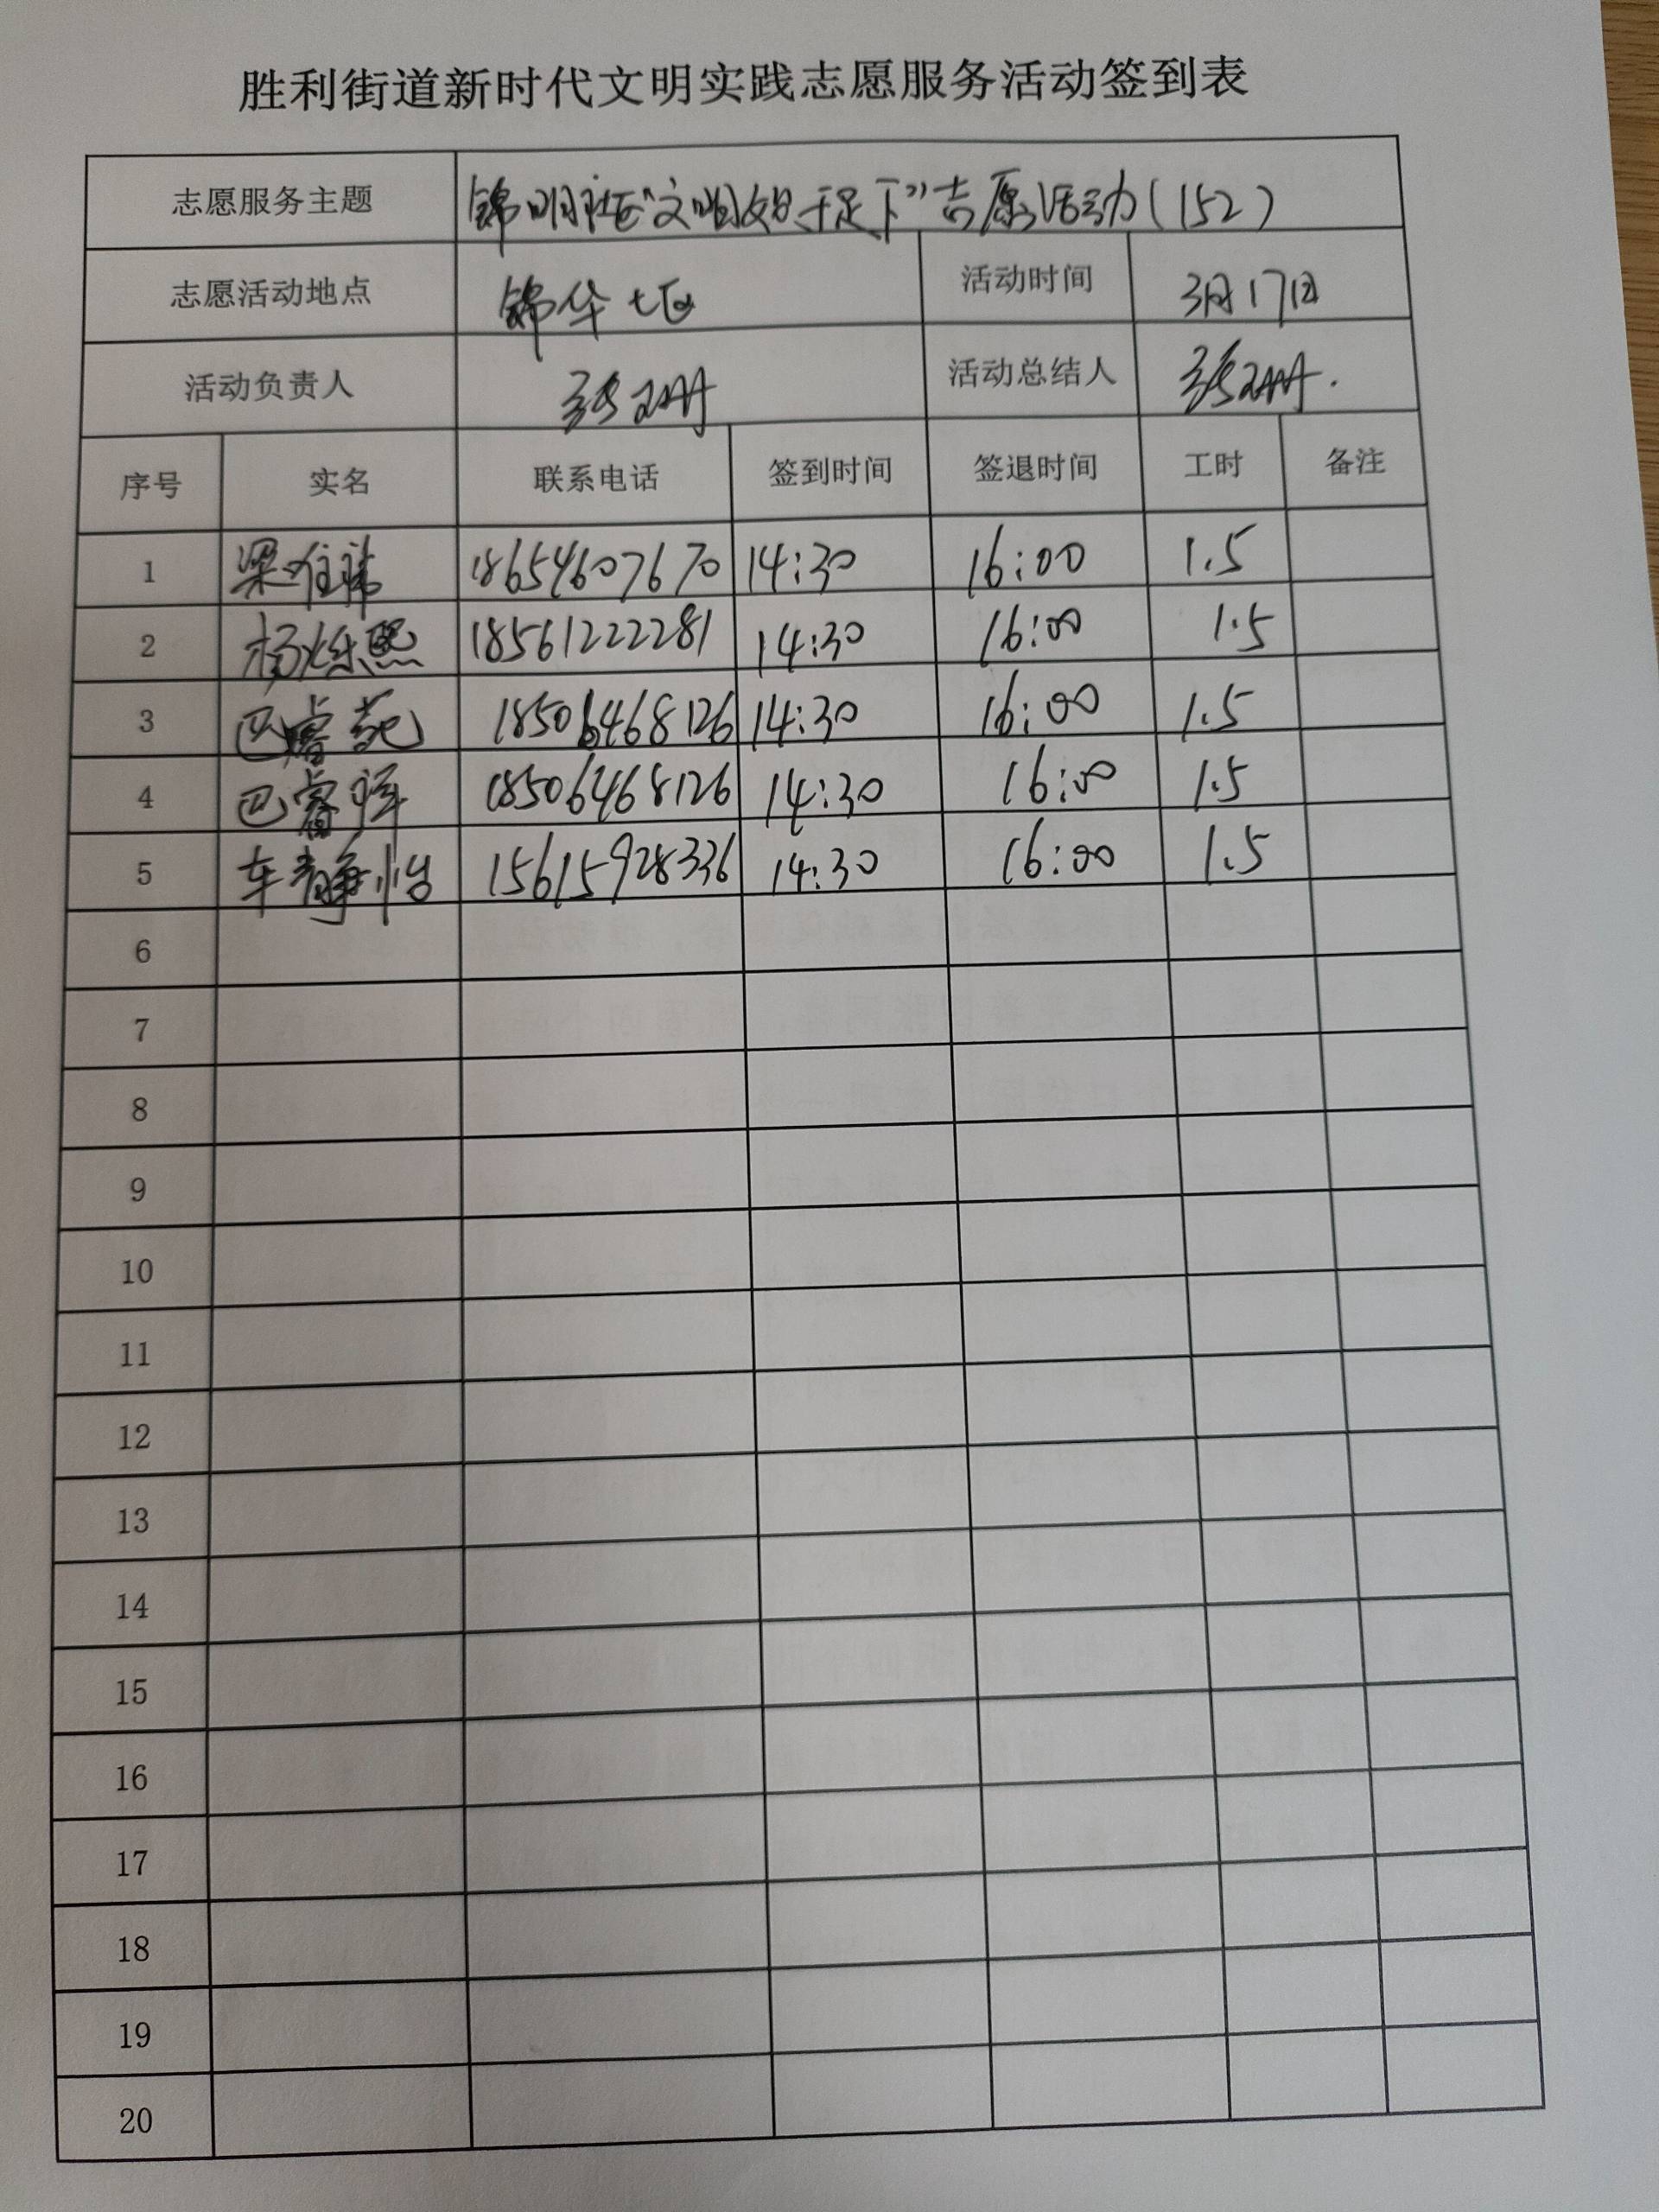 胜利街道新时代文明实践志愿服务活动签到表
志愿服务主题 锦明社区"文明始于足下"志愿活动(152)
志愿活动地点 锦华七区 活动时间 3月17日
活动负责人 张珊 活动总结人 张珊.
序号 实名 联系电话 签到时间 签退时间 工时 备注
1 梁 18654607670 14:30 16:00 1.5
2 杨 熙 18561222281 14:30 16:00 1.5
3 巴睿苑 18506468126 14:30 16:00 1.5
4 巴睿 18506468126 14:30 16:00 1.5
5 车静怡 15615928336 14:30 16:00 1.5
6
7
8
9
10
11
12
13
14
15
16
17
18
19
20